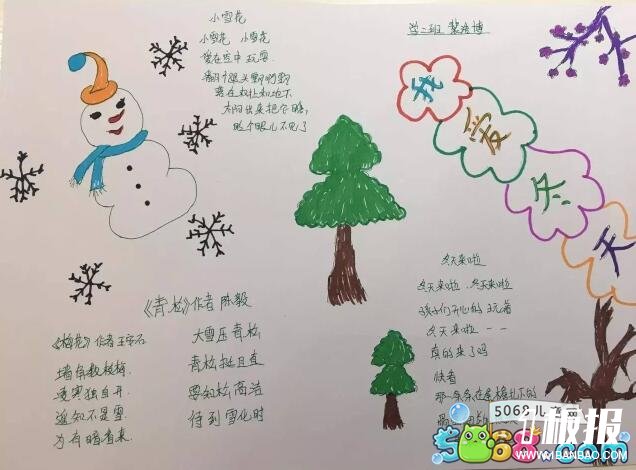 小雪花
小雪花 小雪花
爱在空中玩耍
翻个跟头
落在树枝和地下
太阳出来把它晒
眨个眼儿不见了
学二班
我爱冬天
《青松》作者 陈毅
大雪压青松
青松挺且直
要知松高洁
待到雪化时
《梅花》作者王安石
墙角数枝梅
凌寒独自开
遥知不是雪
为有暗香来
冬天来啦
冬天来啦 冬天来啦
孩子们开心的玩着
冬天来啦 - -
真的来了吗
快看
那一条条在屋檐
5068儿童网
5068.com
板报
WWW.1BANBAO.COM